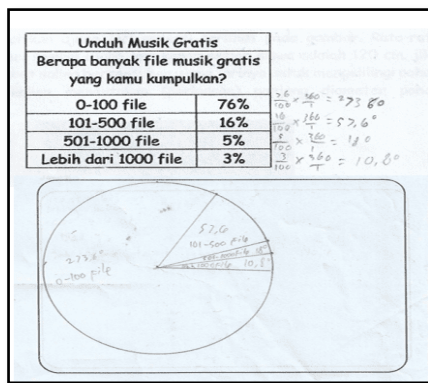 Unduh Musik Gratis
Berapa banyak file musik gratis
yang kamu kumpulkan?
0-100 file 76%
101-500 file 16%
501-1000 file 5%
Lebih dari 1000 file 3%
76/100 × 360/1 = 273,6°
16/100 × 360/1 = 57,6°
5/100 × 360/1 = 18°
3/100 × 360/1 = 10,8°
57,6
101-500 file
273,6°
0-100 file
18°
10,8°